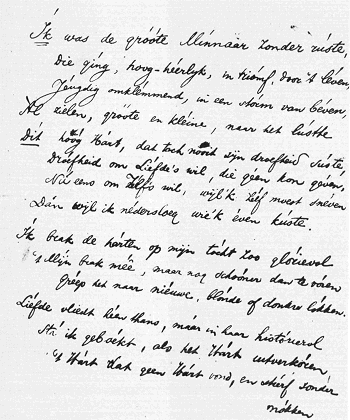 Ik was de gróóte Minnaar zonder rúste,
Die ging, hoog-héerlyk, in triomf, door 't léven,
Jeugdig omklémmend, in een storm van béven,
Al zielen, gróote en kleine, naar het lustte
Dit hóóg Hart, dat toch nóóit zijn droefheid súste,
Dróefheid om Liefde's wil, die géén kon géven,
Nú eens om Zélfs wil, wijl 'k zélf moest snéven
Dán wijl ik nédersloeg wie 'k éven kúste.
Ik brak de hárten op mijn tócht zoo glórievol
't Mijn brak méé, maar nog schóoner dan te vóren
Gréép het naar niéuwe, blónde of donkre lókken.
Liéfde vliedt héen thans, máar in haar histórierol
Stá ik gebóekt, als het Hárt uitverkóren,
't Hárt dat geen Hárt vond, en stiérf zonder
mókken